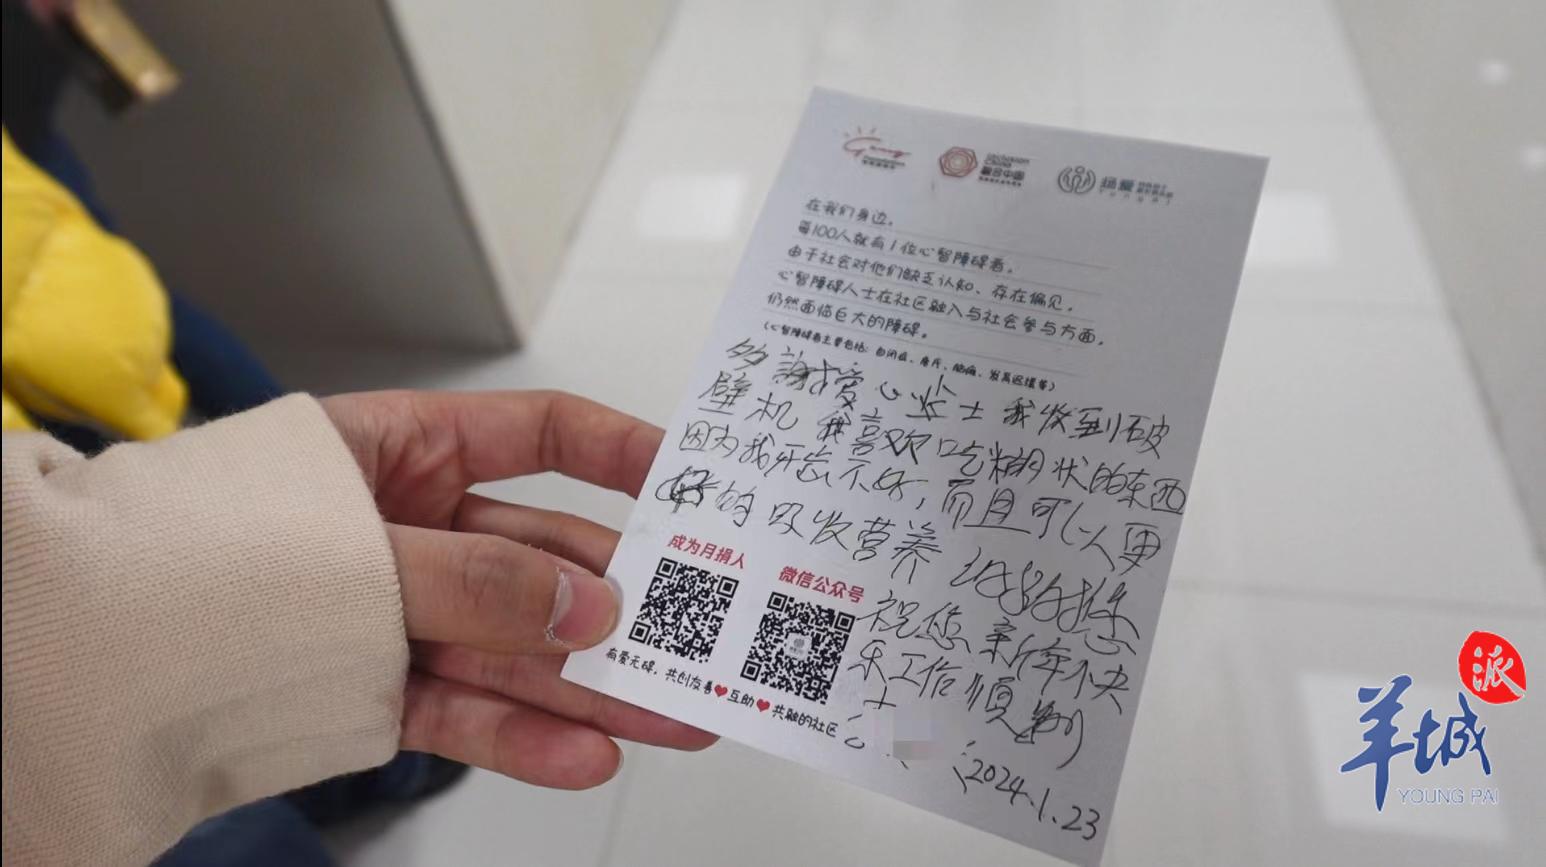 融合中国
扬爱
在我们身边,
每100人就有1位心智障碍者。
由于社会对他们缺乏认知、存在偏见,
心智障碍人士在社区融入与社会参与方面,
仍然面临巨大的障碍。
(心智障碍者主要包括:自闭症、唐氏、脑瘫、发育迟缓等)
多謝愛心人士 我收到破
壁机 我喜欢吃糊状的东西
因为我牙齿不好,而且可以人更
好的吸收营养 谢谢您
祝您新年快
乐工作顺利
2024.1.23
成为月捐人
微信公众号
有爱无碍,共创友善❤互助❤共融的社区
派
羊城
YOUNG PAI